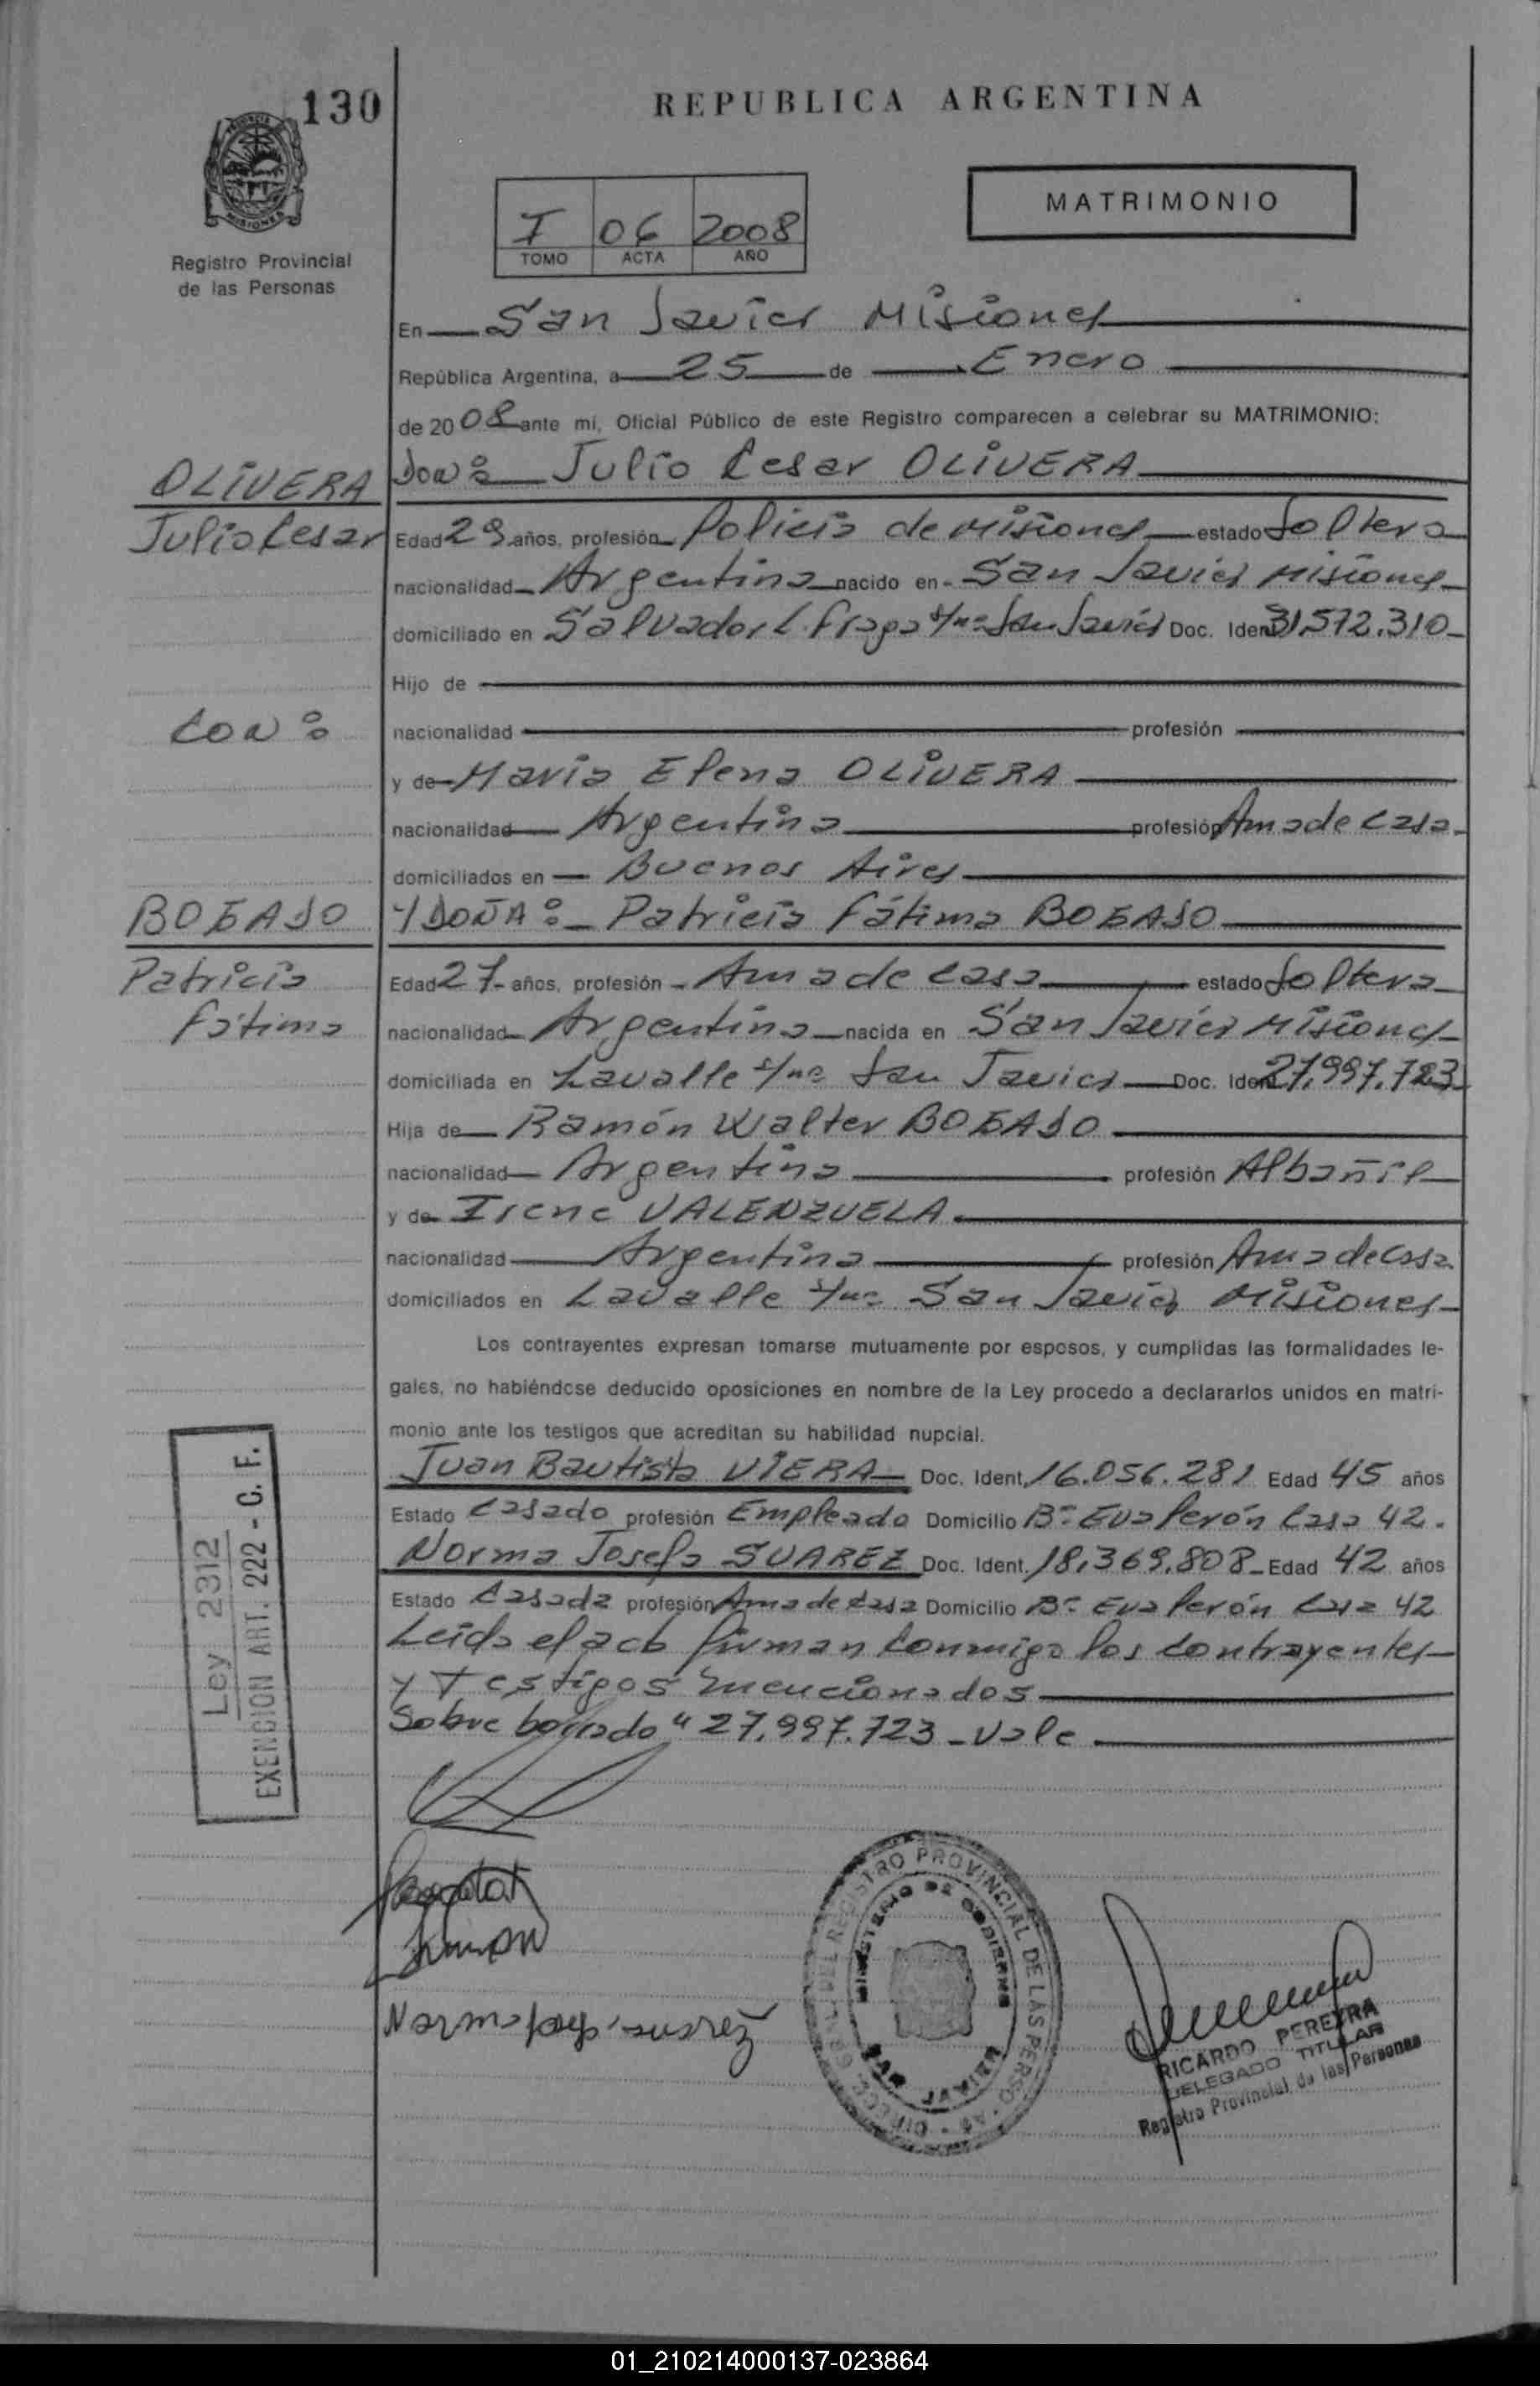 130
REPUBLICA ARGENTINA
PROVINCIA
MISIONES
MATRIMONIO
I 06 2008
TOMO ACTA AÑO
Registro Provincial
de las Personas
En San Javier Misiones
República Argentina, a 25 de Enero
de 2008 ante mi, Oficial Público de este Registro comparecen a celebrar su MATRIMONIO:
OLIVERA
Don: Julio Cesar OLIVERA
Julio Cesar
Edad 29 años, profesión Policia de Misiones estado Soltero
nacionalidad Argentina nacido en San Javier Misiones
domiciliado en Salvador L. Fraga s/nº San Javier Doc. Ident. 31.572.310
Hijo de
Con:
nacionalidad profesión
y de Maria Elena OLIVERA
nacionalidad Argentina profesión Ama de casa
domiciliados en Buenos Aires
BOGADO
Y DOÑA: Patricia Fátima BOGADO
Patricia
Fátima
Edad 27 años, profesión Ama de casa estado Soltera
nacionalidad Argentina nacida en San Javier Misiones
domiciliada en Lavalle s/nº San Javier Doc. Ident. 27.997.723
Hija de Ramón Walter BOGADO
nacionalidad Argentina profesión Albañil
y de Irene VALENZUELA
nacionalidad Argentina profesión Ama de Casa
domiciliados en Lavalle s/nº San Javier Misiones
Los contrayentes expresan tomarse mutuamente por esposos, y cumplidas las formalidades le-
gales, no habiéndose deducido oposiciones en nombre de la Ley procedo a declararlos unidos en matri-
monio ante los testigos que acreditan su habilidad nupcial.
Juan Bautista VIERA Doc. Ident. 16.056.281 Edad 45 años
Estado Casado profesión Empleado Domicilio Bº Eva Perón Casa 42.
Norma Josefa SUAREZ Doc. Ident. 18.369.808 Edad 42 años
Estado Casada profesión Ama de casa Domicilio Bº Eva Perón Casa 42
Leida el acta firman conmigo los contrayentes
y Testigos mencionados
Sobre borrado " 27.997.723 - Vale
Ley 2312
EXENCION ART. 222 - C. F.
DIRECC. GRAL. DEL REGISTRO PROVINCIAL DE LAS PERSONAS
MINISTERIO DE GOBIERNO
SAN JAVIER
RICARDO PEREYRA
DELEGADO TITULAR
Registro Provincial de las Personas
01_210214000137-023864